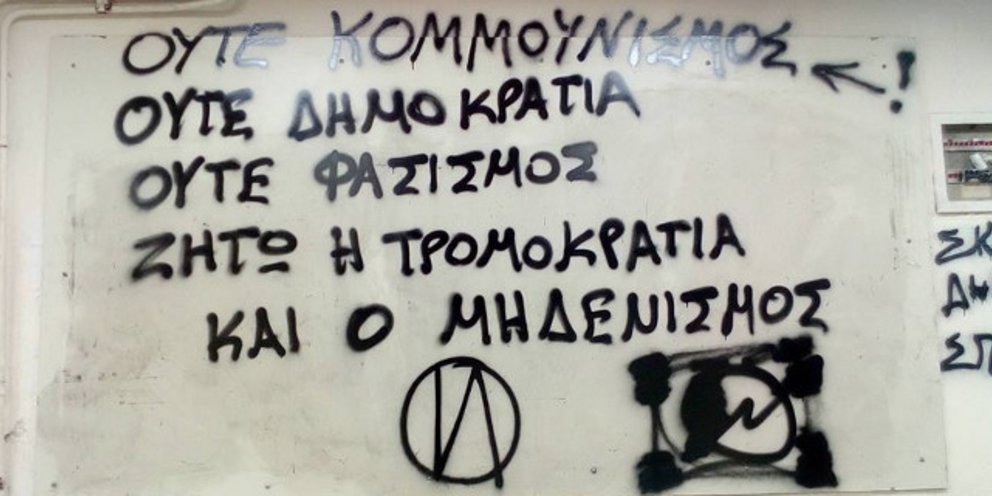 ΟΥΤΕ ΚΟΜΜΟΥΝΙΣΜΟΣ !
ΟΥΤΕ ΔΗΜΟΚΡΑΤΙΑ
ΟΥΤΕ ΦΑΣΙΣΜΟΣ
ΖΗΤΩ Η ΤΡΟΜΟΚΡΑΤΙΑ
ΚΑΙ Ο ΜΗΔΕΝΙΣΜΟΣ
ΣΚ
ΣΠ